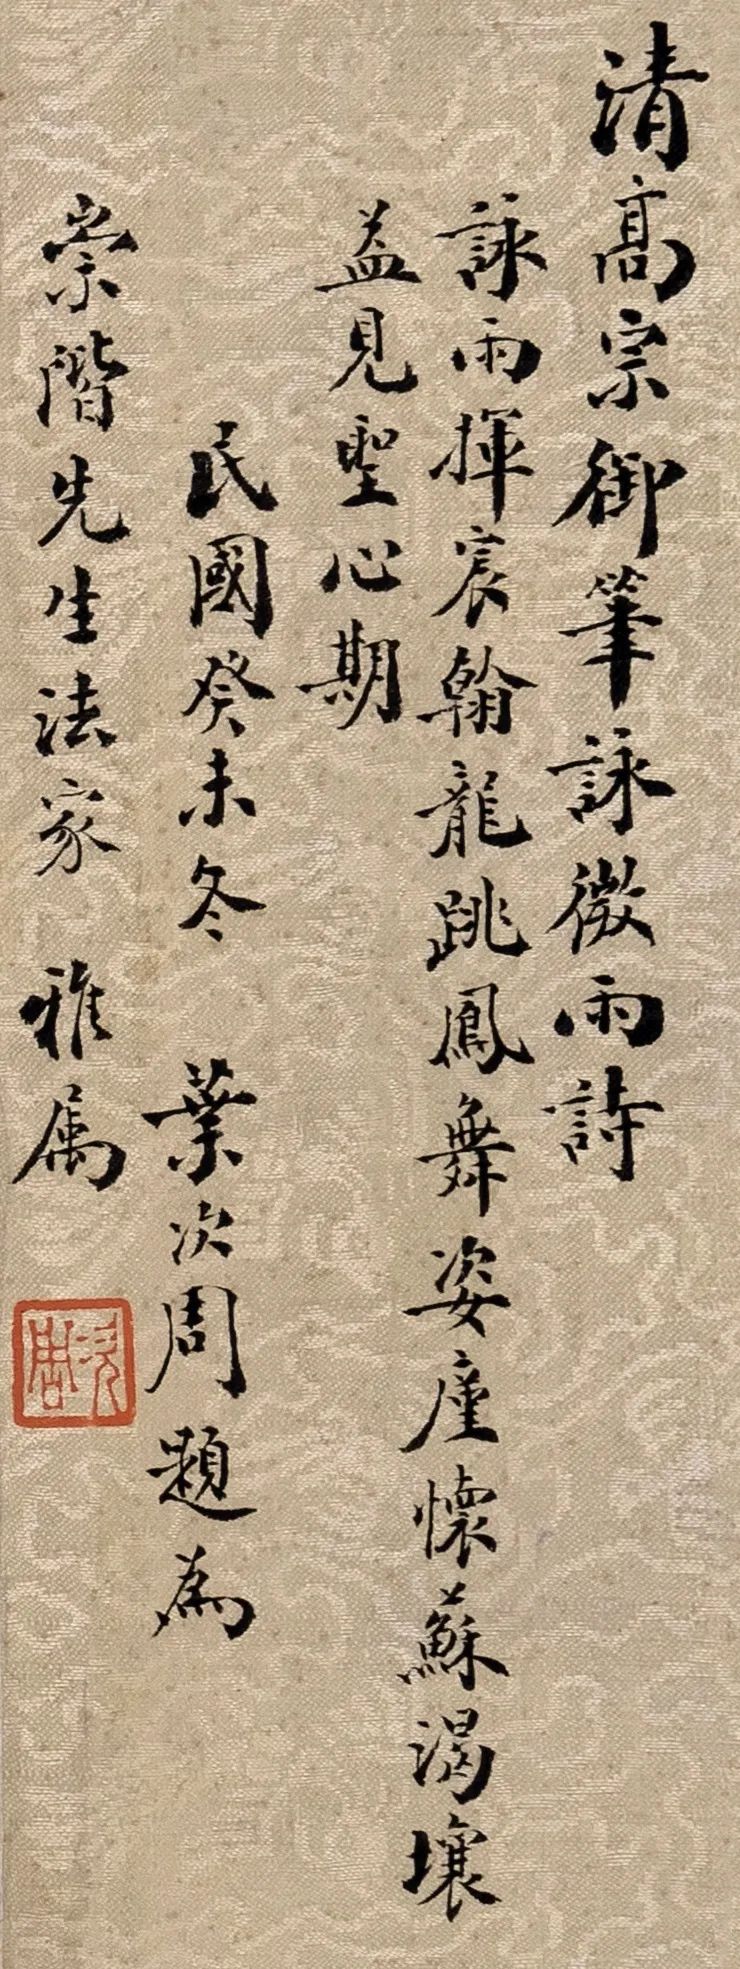 清高宗御筆詠微雨詩
詠雨揮宸翰龍跳鳳舞姿廑懷蘇渴壤
益見聖心期
民國癸未冬 葉次周題為
崇階先生法家 雅属
次周